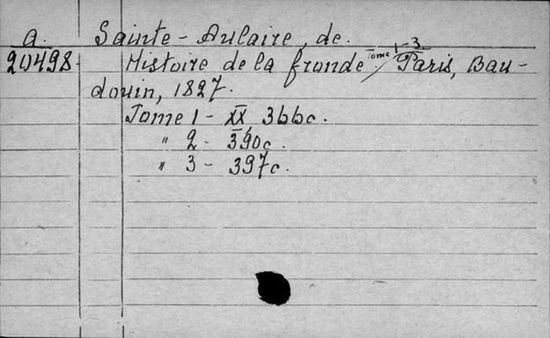 a. Sainte-Aulaire, de.
Tome 1-3
20498. Histoire de la fronde. Paris, Bau-
douin, 1827.
Tome 1 - XX, 366c.
" 2 - 390c.
" 3 - 397c.